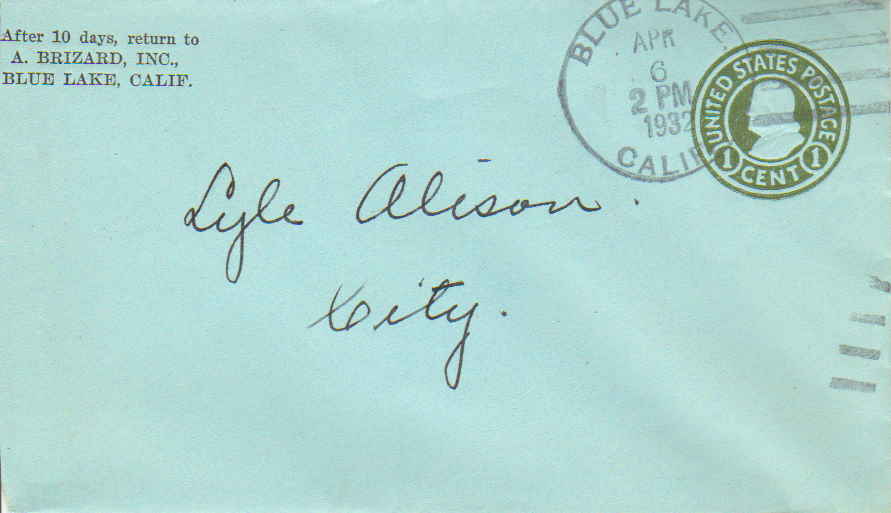 After 10 days, return to
A. BRIZARD, INC.,
BLUE LAKE, CALIF.
BLUE LAKE.
APR
6
2 PM
1932
CALIF
UNITED STATES POSTAGE
1 CENT 1
Lyle Alison.
City.